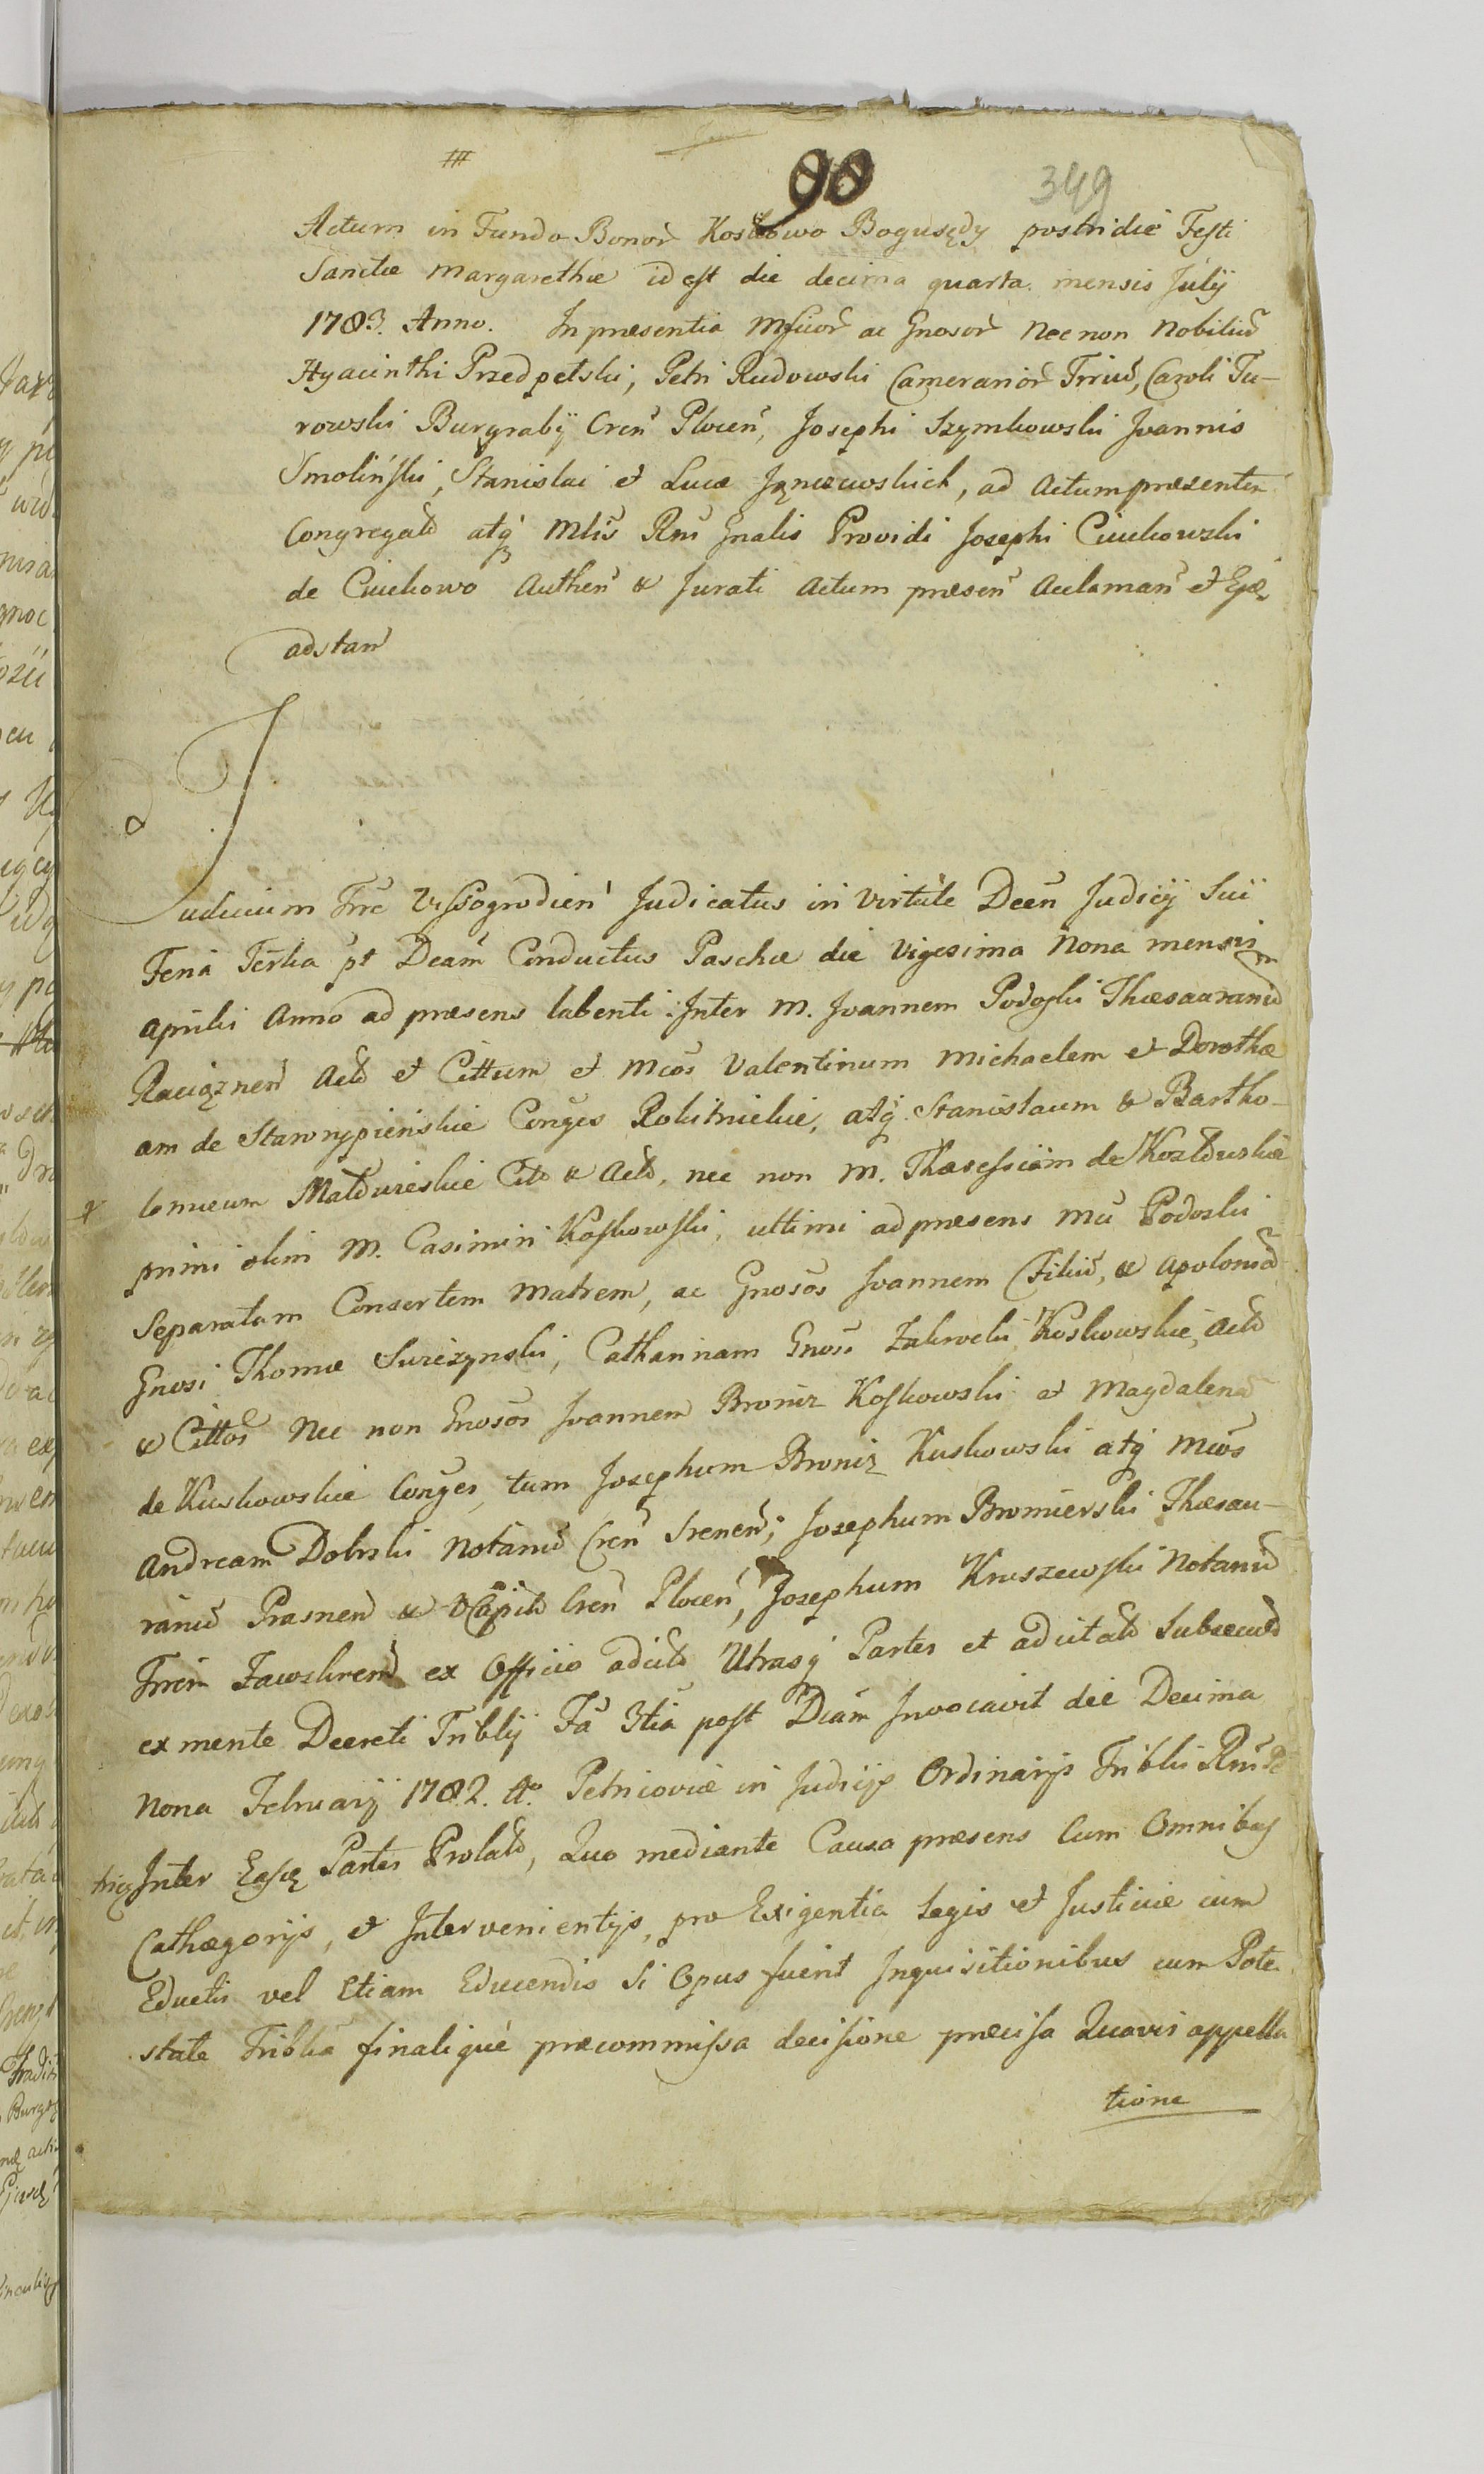 90 349
Actum in Fundo Bonor̃ Koskowo Bogusędy postridie Festi
Sanctæ Margarethæ id est die decima quarta mensis Julÿ
1783. Anno. In præsentia Mficor̃ ac Gnosor̃ Nec non Nobiliũ
Hyacinthi Przedpełski, Petri Rudowski Camerarior̃ Trriũ, Caroli Tu-
rowski Burgrabÿ Cren̄ Plocen̄, Josephi Szymkowski Joannis
Smolinski, Stanislai et Lucæ, ad Actum præsentem
Congregatõ atq; Mlis Rni Gnalis Providi Josephi Ciuckowski
de Ciuckowo Authen̄ & Jurati Actum præsen̄ Acclaman̄ et
adstan̄
Judicium Trre Vissogrodien̄ Judicatus in Virtute Decn̄ Judicÿ Sui
Feria Tertia pt Dcam̄ Conductus Paschæ die Vigesima Nona mensis
Aprilis Anno ad præsens labenti Inter M. Joannem Podoski Thæsaurariũ
Raciąznen̄ Actõ et Cittum et Mcos̄ Valentinum Michaelem et Dorothæ
am de Conges Rokitnickie, atq; Stanislaum & Bartho-
lomæum Citõ & Actõ, nec non M. Thæressiam de
primi olim M. Casimiri Koskowski, ultimi ad præsens Mci Podoski
Separatam Consortem Matrem, ac Gnosos Joannem Filiũ, & Apoloniã
Gnosi Thomæ, Catharinam Gnosi Koskowskie, Actõ
& Cittos Nec non Gnosos Joannem Broniz Koskowski et Magdalenã
de Kuskowskie Conges, tum Josephum Broniz Kuskowski atq; Mcos
Andream Dobrski Notariũ Cren̄ Srenen̄, Josephum Bromierski Thæsau-
rariũ Prasnen̄ & VCapitõ Cren̄ Plocen̄, Josephum Kruszewski Notariũ
Trrem Zawskren̄ ex Officio adcitõ Utrasq; Partes et adcitatõ Subsecutõ
ex mente Decreti Triblÿ Fã 3tiã post Dcam̄ Invocavit die Decima
Nona Februarÿ 1782. Ao. Petricoviæ in Judicÿs Ordinarÿs Triblis Rni
Inter Easq; Partes Prolatõ, Quo mediante Causa præsens Cum Omnibus
Cathægorÿs, et Intervenientÿs, pro Exigentia Legis et Justiciæ cum
Eductis vel Etiam Educendis Si Opus fuerit Inquisitionibus cum Pote
state Triblica finalique præcommissa decisione præcisa Quavis appella
tione